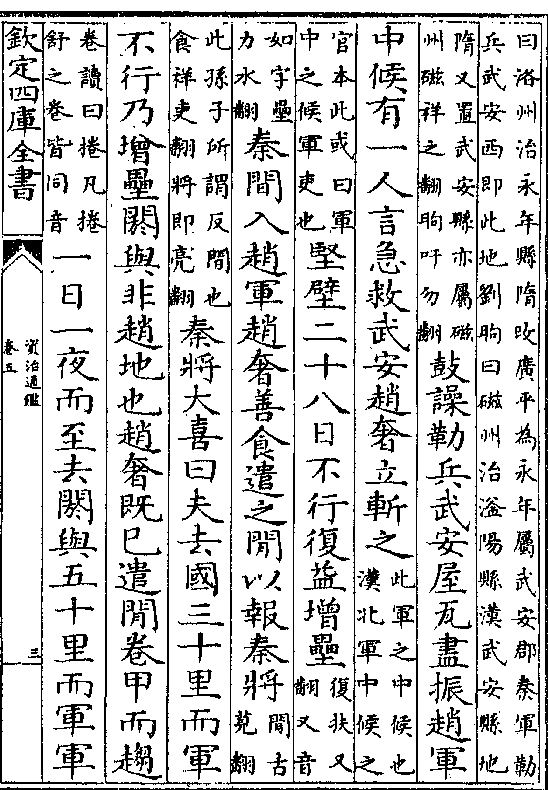 曰洛州治永年縣隋改廣平為永年屬武安郡秦軍勒
兵武安西即此地劉昫曰磁州治滏陽縣漢武安縣地
隋又置武安縣亦屬磁
州磁祥之翻昫吁勿翻
鼓譟勒兵武安屋瓦盡振趙軍
中候有一人言急救武安趙奢立斬之
此軍之中候也
漢北軍中候之
官本此或曰軍
中之候軍吏也
堅壁二十八日不行復益增壘
復扶又
翻又音
如字壘
力水翻
秦間入趙軍趙奢善食遣之間以報秦將
間古
莧翻
此孫子所謂反間也
食祥吏翻將即亮翻
秦將大喜曰夫去國三十里而軍
不行乃增壘閼與非趙地也趙奢既已遣間卷甲而趨
卷讀曰捲凡捲
舒之卷皆同音
一日一夜而至去閼與五十里而軍軍
欽定四庫全書
資治通鑑
卷五
三